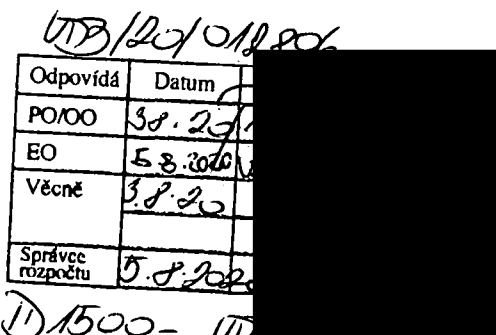 UTB/20/012806
Odpovídá Datum
PO/OO 3.8.20
EO 5.8.2020
Věcně 3.8.20
Správce
rozpočtu 5.8.2020
II) 1500-